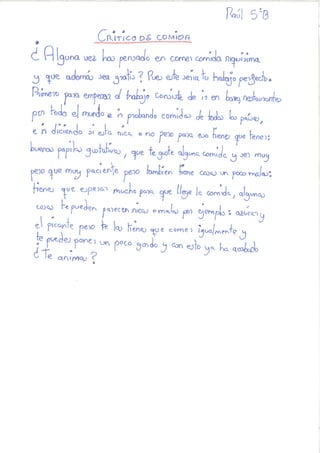 Raúl 5ºB
CRÍTICO DE COMIDA
¿Alguna vez has pensado en comer comida riquísima
y que además sea gratis? Pues este sería tu trabajo perfecto.
Primero para empezar el trabajo consiste de ir en bares, restaurantes
por todo el mundo e ir probando comidas de todos los países,
e ir diciendo si está rica o no pero para eso tienes que tener:
buenas papilas gustativas, que te guste alguna comida y ser muy
pero que muy paciente pero también tiene cosas un poco malas:
tienes que esperar mucho para que llegue la comida, algunas
cosas te pueden parecer ricas o malas por ejemplo: azúcar y
el picante pero te las tienes que comer igualmente y
te puedes poner un poco gordo y con esto ya ha acabado
¿Te animas?